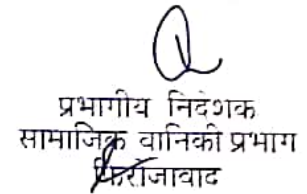 प्रभागीय निदेशक
सामाजिक वानिकी प्रभाग
फिरोजावाद